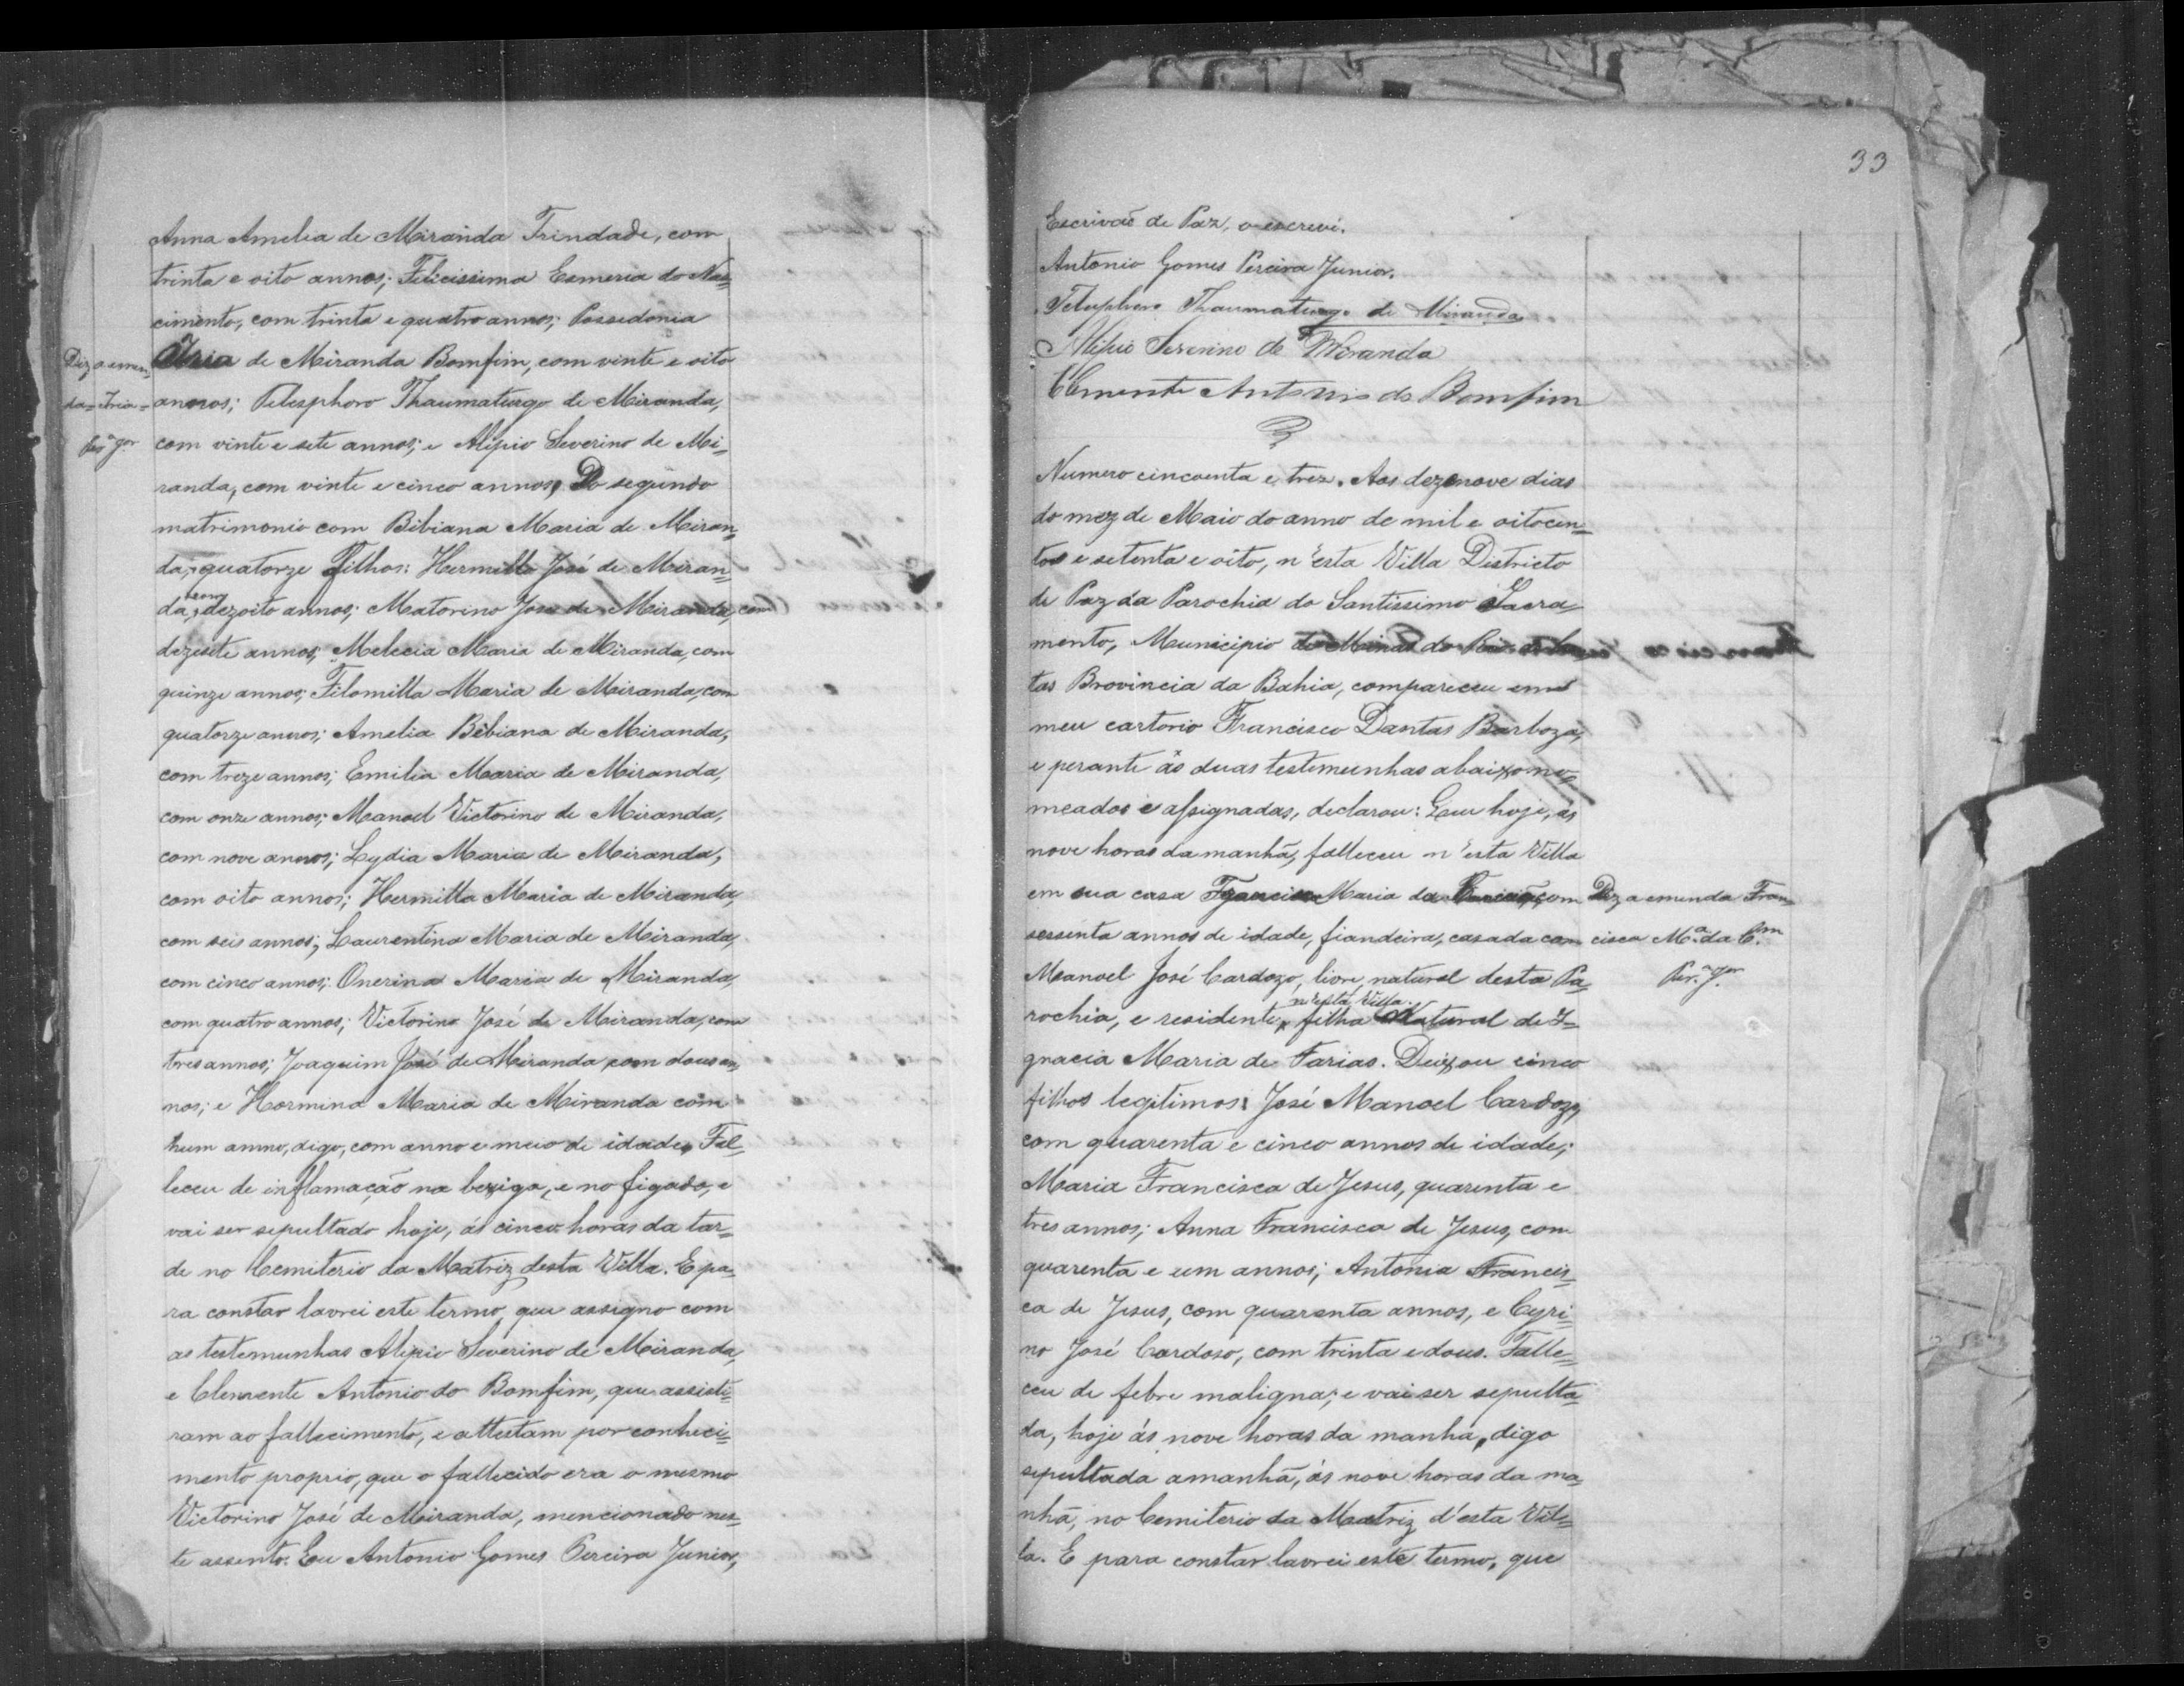 Anna Amelia de Miranda Trindade, com
trinta e oito annos; Felicissima Esmeria do Nas=
cimento, com trinta e quatro annos; Possedonia
Iria de Miranda Bomfim, com vinte e oito
annos; Telesphoro Thaumaturgo de Miranda,
com vinte e sete annos; e Alipio Severino de Mi=
randa, com vinte e cinco annos, Do segundo
matrimonio com Bibiana Maria de Miran=
da, quatorze Filhos: Hermillo José de Miran=
da, com dezoito annos; Matorino José de Miranda, com
dezesete annos; Melecia Maria de Miranda, com
quinze annos; Filomilla Maria de Miranda, com
quatorze annos; Amelia Bibiana de Miranda,
com treze annos; Emilia Maria de Miranda,
com onze annos; Manoel Victorino de Miranda,
com nove annos; Lydia Maria de Miranda,
com oito annos; Hermilla Maria de Miranda,
com seis annos; Laurentina Maria de Miranda,
com cinco annos; Onerina Maria de Miranda,
com quatro annos; Victorino José de Miranda, com
tres annos; Joaquim José de Miranda com dous an=
nos; e Hormina Maria de Miranda com
hum anno, digo, com anno e meio de idade, Fal=
leceu de inflamação na bexiga, e no figado, e
vai ser sepultado hoje, ás cinco horas da tar=
de no Cemiterio da Matriz desta Villa. E pa=
ra constar lavrei este termo, que assigno com
as testemunhas Alipio Severino de Miranda,
e Clemente Antonio do Bomfim, que assisti=
ram ao fallecimento, e attestam por conheci=
mento proprio, que o fallecido era o mesmo
Victorino José de Miranda, mencionado nes=
te assento. Eu Antonio Gomes Pereira Junior,
Diz a emen=
da = Iria =
33
Escrivão de Paz, o escrevi.
Antonio Gomes Pereira Junior.
Telesphoro Thaumaturgo de Miranda
Alipio Severino de Miranda
Clemente Antonio do Bomfim
Numero cincoenta e trez. Aos dezenove dias
do mez de Maio do anno de mil e oitocen=
tos e setenta e oito, n'esta Villa Districto
de Paz da Parochia do Santissimo Sacra=
mento, Municipio de Minas do Rio de Con=
tas Provincia da Bahia, compareceu em
meu cartorio Francisco Dantas Barboza,
e perante ás duas testemunhas abaixo no=
meados e assignadas, declarou: Que hoje, ás
nove horas da manhã, falleceu n'esta Villa
em sua casa Francisca Maria da com
sessenta annos de idade, fiandeira, casada com
Manoel José Cardozo, livre, natural desta Pa=
rochia, e residente n'esta Villa. filha Natural de I=
gnacia Maria de Farias. Deixou cinco
filhos legitimos: José Manoel Cardozo,
com quarenta e cinco annos de idade;
Maria Francisca de Jesus, quarenta e
tres annos; Anna Francisca de Jesus, com
quarenta e um annos; Antonia Francis=
ca de Jesus, com quarenta annos, e Cyri=
no José Cardoso, com trinta e dous. Falle=
ceu de febre maligna; e vai ser sepulta=
da, hoje ás nove horas da manhã, digo
sepultada amanhã, ás nove horas da ma=
nhã, no Cemiterio da Matriz d'esta Vil=
la. E para constar lavrei este termo, que
Diz a emenda Fran=
cisca M.ª da C.am
Per.ª J.or